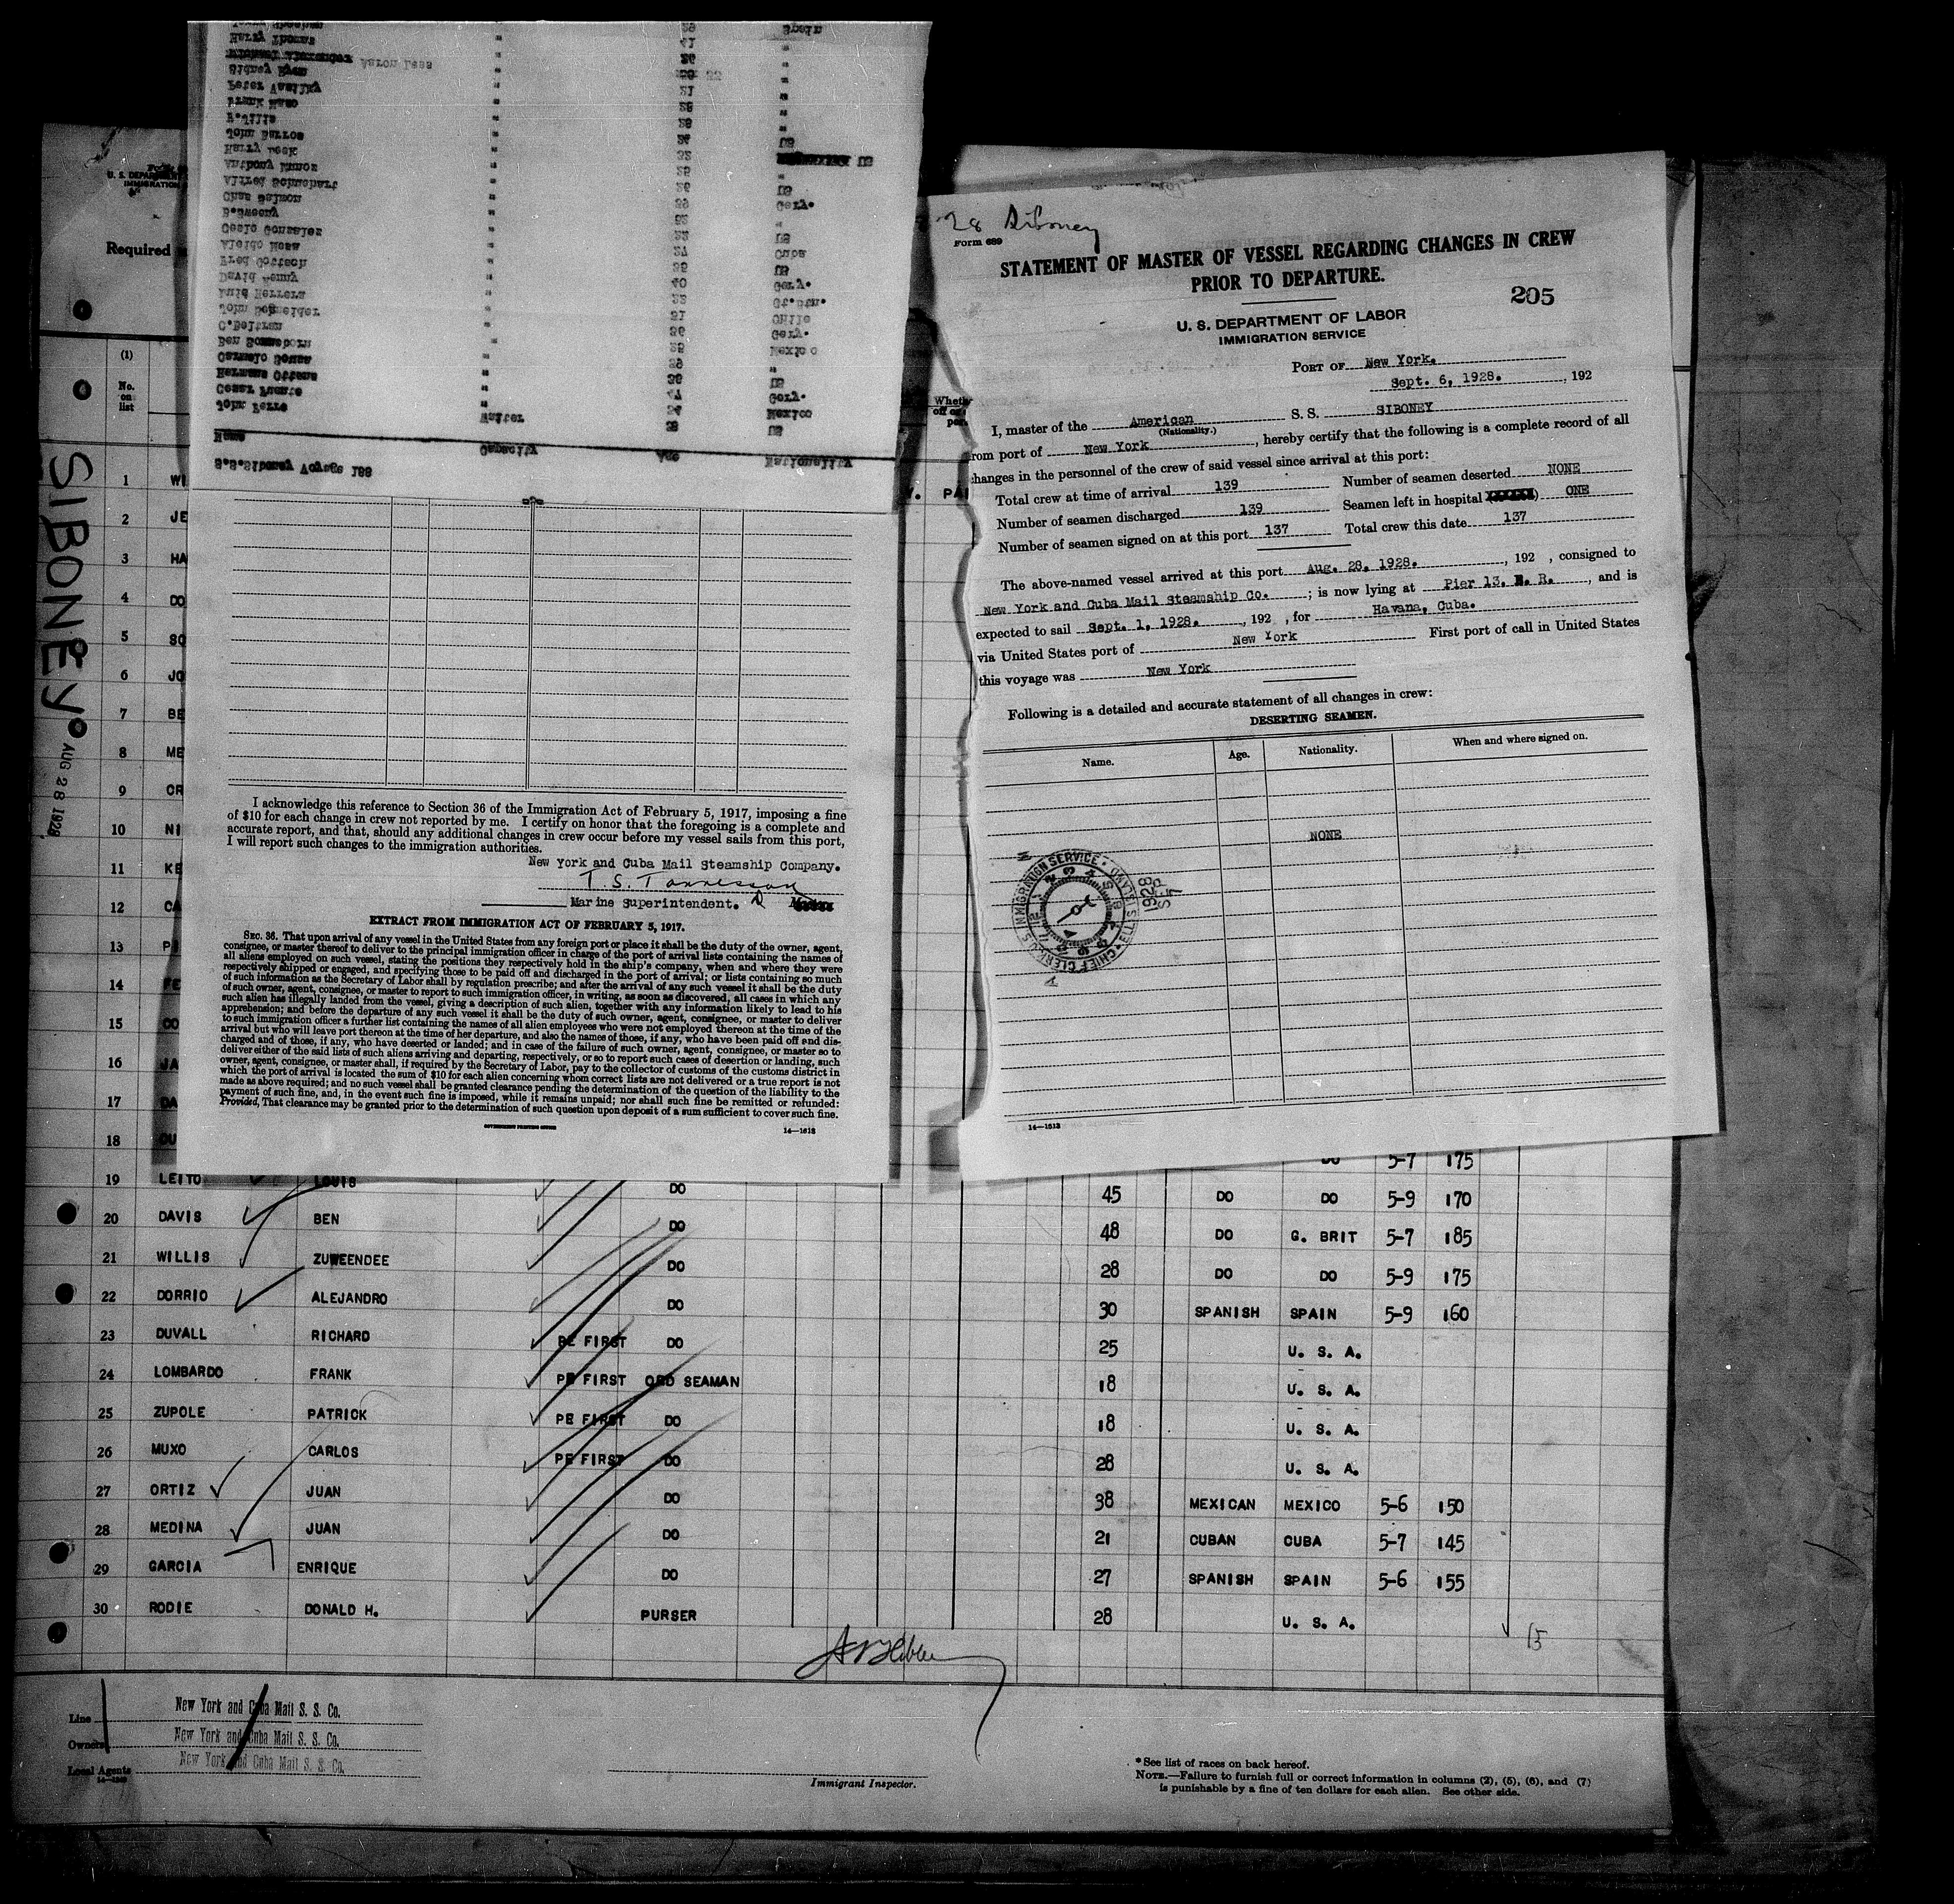 28 Siboney
Form 689
STATEMENT OF MASTER OF VESSEL REGARDING CHANGES IN CREW
PRIOR TO DEPARTURE.
205
U. S. DEPARTMENT OF LABOR
IMMIGRATION SERVICE
PORT OF New York.
Sept. 6, 1928. , 192
I, master of the American S. S. SIBONEY
(Nationality.)
from port of New York , hereby certify that the following is a complete record of all
changes in the personnel of the crew of said vessel since arrival at this port:
Total crew at time of arrival 139 Number of seamen deserted NONE
Number of seamen discharged 139 Seamen left in hospital ONE
Number of seamen signed on at this port 137 Total crew this date 137
The above-named vessel arrived at this port Aug. 28, 1928. , 192 , consigned to
New York and Cuba Mail Steamship Co. ; is now lying at Pier 13, E. R. , and is
expected to sail Sept. 1, 1928. , 192 , for Havana, Cuba.
via United States port of New York First port of call in United States
this voyage was New York
Following is a detailed and accurate statement of all changes in crew:
DESERTING SEAMEN.
Name. Age. Nationality. When and where signed on.
NONE
U.S. IMMIGRATION SERVICE · ELLIS ISLAND · CHIEF CLERK
SEP 7 1928
14—1513
S.S.Siboney Voyage 188
Name Capacity Age Nationality
John Ferro Waiter 29 US
Cesar Puente " 34 Mexico
Hermann Ottens " 47 Gery.
Carmelo Sousa " 36 US
Ben Sonneborn " 39 "
C.Beltran " 25 Mexico
John Schneider " 36 Gery.
Luid Herrera " 31 Chile
David Penny " 22 Gt.Btn.
Fred Gottsch " 40 Gery.
Aleido Mosa " 35 US
Cesio Gonzalez " 27 Cuba
B.Sweeny " 22 US
Chas Salmon " 52 "
Alfred Schuchart " 39 Gery.
Anthony Munoz " 26 US
Harry Deek " 25
John Barros " 32 US
F.Jills " 24 US
Frank Maso " 28 "
Peter Vasilky " 28 "
Sidney Ryan " 21 "
Aaron Less 22 "
Harry Thomas " 26 "
41 "
29 Spain
I acknowledge this reference to Section 36 of the Immigration Act of February 5, 1917, imposing a fine
of $10 for each change in crew not reported by me. I certify on honor that the foregoing is a complete and
accurate report, and that, should any additional changes in crew occur before my vessel sails from this port,
I will report such changes to the immigration authorities.
New York and Cuba Mail Steamship Company.
T. S. Tonnesson
Marine Superintendent.
EXTRACT FROM IMMIGRATION ACT OF FEBRUARY 5, 1917.
SEC. 36. That upon arrival of any vessel in the United States from any foreign port or place it shall be the duty of the owner, agent,
consignee, or master thereof to deliver to the principal immigration officer in charge of the port of arrival lists containing the names of
all aliens employed on such vessel, stating the positions they respectively hold in the ship's company, when and where they were
respectively shipped or engaged, and specifying those to be paid off and discharged in the port of arrival; or lists containing so much
of such information as the Secretary of Labor shall by regulation prescribe; and after the arrival of any such vessel it shall be the duty
of such owner, agent, consignee, or master to report to such immigration officer, in writing, as soon as discovered, all cases in which any
such alien has illegally landed from the vessel, giving a description of such alien, together with any information likely to lead to his
apprehension; and before the departure of any such vessel it shall be the duty of such owner, agent, consignee, or master to deliver
to such immigration officer a further list containing the names of all alien employees who were not employed thereon at the time of the
arrival but who will leave port thereon at the time of her departure, and also the names of those, if any, who have been paid off and dis-
charged and of those, if any, who have deserted or landed; and in case of the failure of such owner, agent, consignee, or master so to
deliver either of the said lists of such aliens arriving and departing, respectively, or so to report such cases of desertion or landing, such
owner, agent, consignee, or master shall, if required by the Secretary of Labor, pay to the collector of customs of the customs district in
which the port of arrival is located the sum of $10 for each alien concerning whom correct lists are not delivered or a true report is not
made as above required; and no such vessel shall be granted clearance pending the determination of the question of the liability to the
payment of such fine, and, in the event such fine is imposed, while it remains unpaid; nor shall such fine be remitted or refunded:
Provided, That clearance may be granted prior to the determination of such question upon deposit of a sum sufficient to cover such fine.
GOVERNMENT PRINTING OFFICE 14—1513
U. S. DEPAR
IMMIGRATION
Required
(1)
No. on list
SIBONEY
AUG 28 1928
1 WI
2 JE
3 HA
4 DO
5 SO
6 JO
7 BE
8 ME
9 CR
10 NI
11 KE
12 CA
13 P
14 FE
15 CO
16 JA
17 DA
18 DU DO 5-7 175
19 LEITO LOUIS DO 45 DO DO 5-9 170
20 DAVIS BEN DO 48 DO G. BRIT 5-7 185
21 WILLIS ZUWEENDEE DO 28 DO DO 5-9 175
22 DORRIO ALEJANDRO DO 30 SPANISH SPAIN 5-9 160
23 DUVALL RICHARD PE FIRST DO 25 U. S. A.
24 LOMBARDO FRANK PE FIRST ORD SEAMAN 18 U. S. A.
25 ZUPOLE PATRICK PE FIRST DO 18 U. S. A.
26 MUXO CARLOS PE FIRST DO 28 U. S. A.
27 ORTIZ JUAN DO 38 MEXICAN MEXICO 5-6 150
28 MEDINA JUAN DO 21 CUBAN CUBA 5-7 145
29 GARCIA ENRIQUE DO 27 SPANISH SPAIN 5-6 155
30 RODIE DONALD H. PURSER 28 U. S. A.
15
Line New York and Cuba Mail S. S. Co.
Owners New York and Cuba Mail S. S. Co.
Local Agents New York and Cuba Mail S. S. Co.
Immigrant Inspector.
*See list of races on back hereof.
NOTE.—Failure to furnish full or correct information in columns (2), (5), (6), and (7)
is punishable by a fine of ten dollars for each alien. See other side.